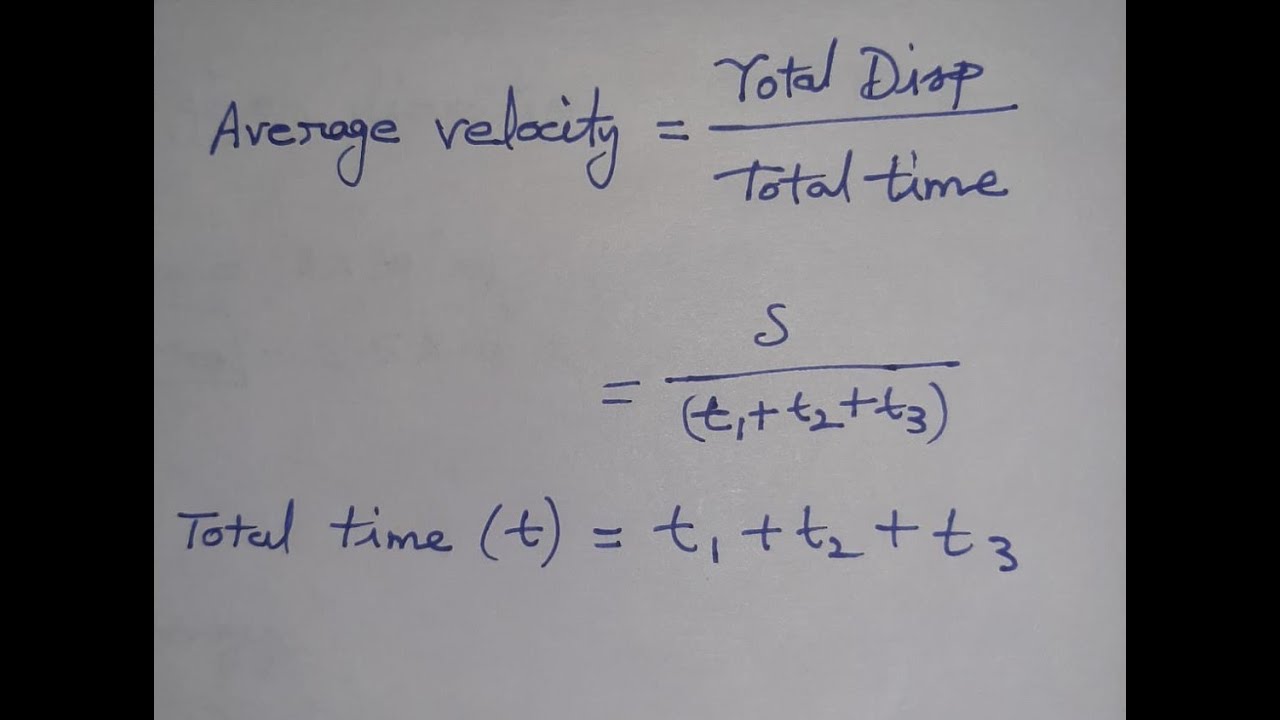 Average velocity = Total Disp / Total time
= S / (t₁+t₂+t₃)
Total time (t) = t₁ + t₂ + t₃